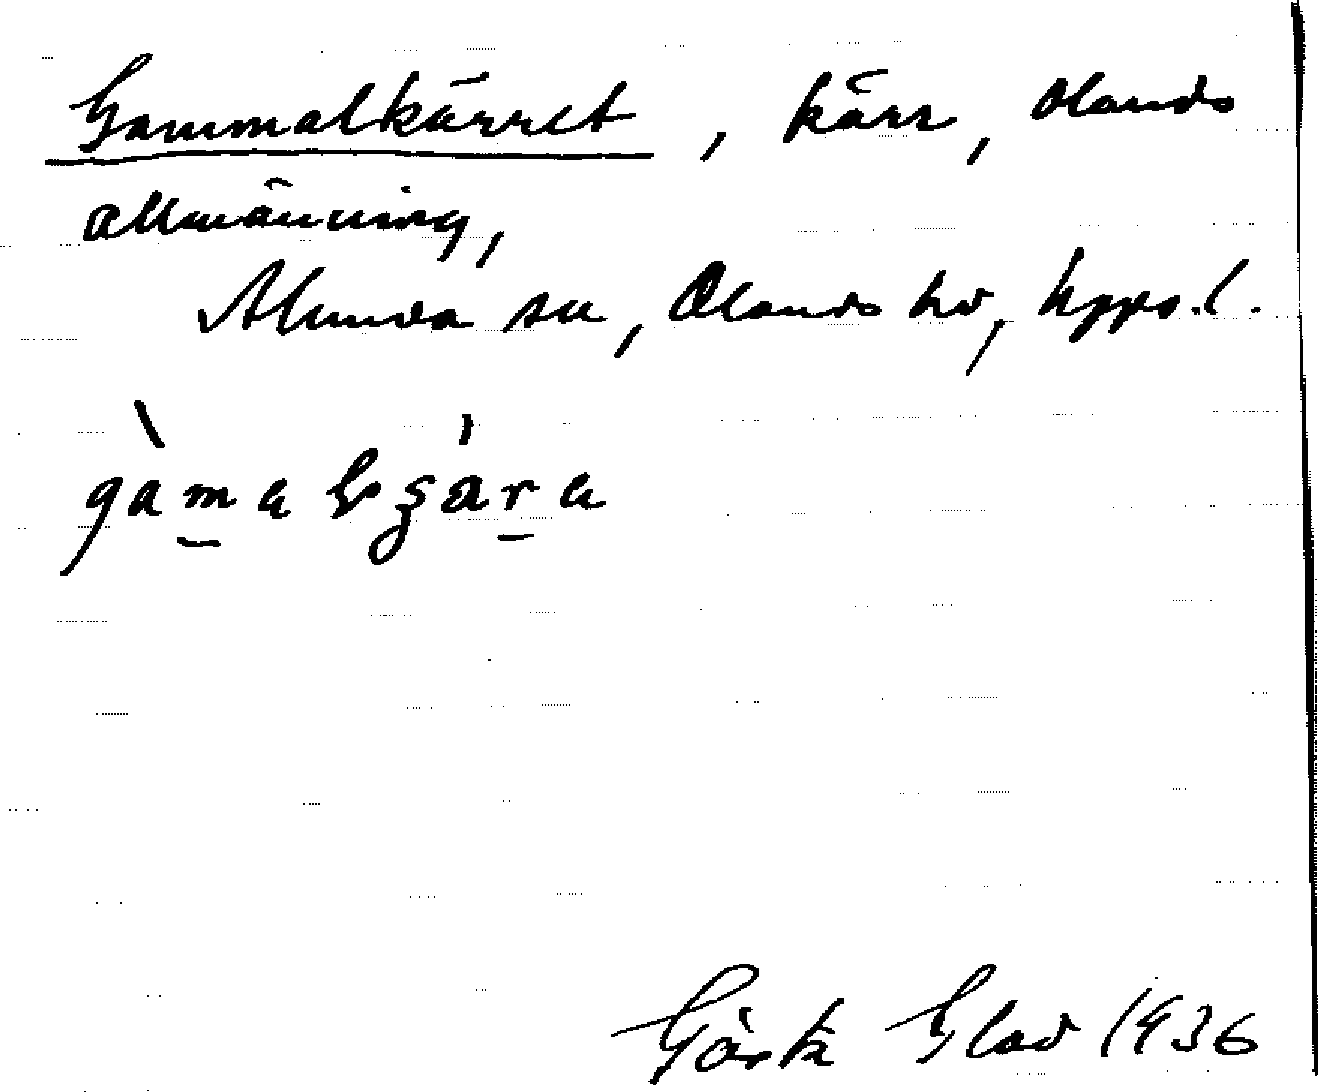 Gammalkärret, kärr, Olands
allmänning,
Alunda sn, Olands hd, Upps. l.
Görk Glad 1936